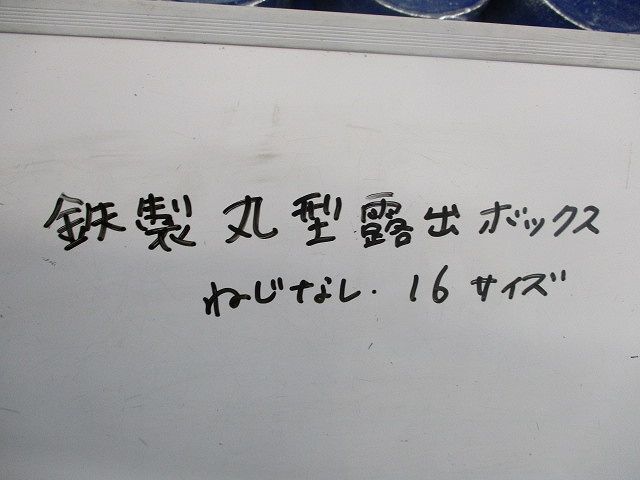 鉄製丸型露出ボックス
ねじなし・16サイズ